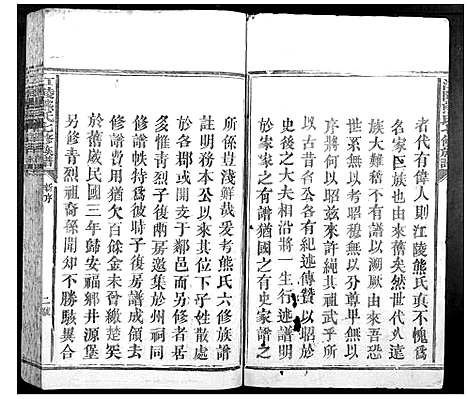 者代有偉人則江陵熊氏真不愧爲
名家巨族也由來舊矣然世代久達
族大難稽不有譜以溯厥由來吾恐
世系無以考昭穆無以分尊卑無以
別無以究來許繩其祖武乎所
以古昔名公各有紀述傳贊以昭於
史後之大夫相沿將一生行述譜明
於家家之有譜猶國之有史家譜之
所係豈淺鮮哉爰考熊氏六修族譜
註明務本公以來其位下子姓散處
於各郡或開支于鄰邑而另修者居
多惟青烈子復幽房邀集於州祠同
修譜帙持爲彼時子復房譜成領去
修譜費用猶欠百餘金未曾繳楚矣
於舊歲民國三年歸安福鄉井源堡
另修青烈祖裔孫聞知不勝駭異合
江陵熊氏七修族譜
新序
二